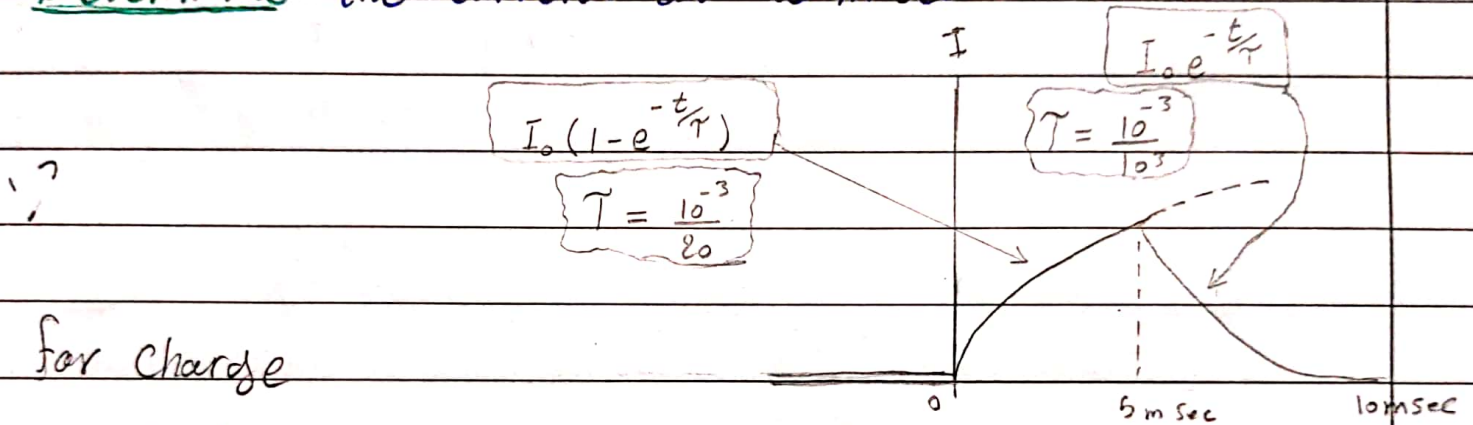 the
I
I₀ e^(-t/τ)
I₀ (1 - e^(-t/τ))
τ = 10⁻³/10³
, ?
τ = 10⁻³/20
for charge
0
5 m sec
10 msec